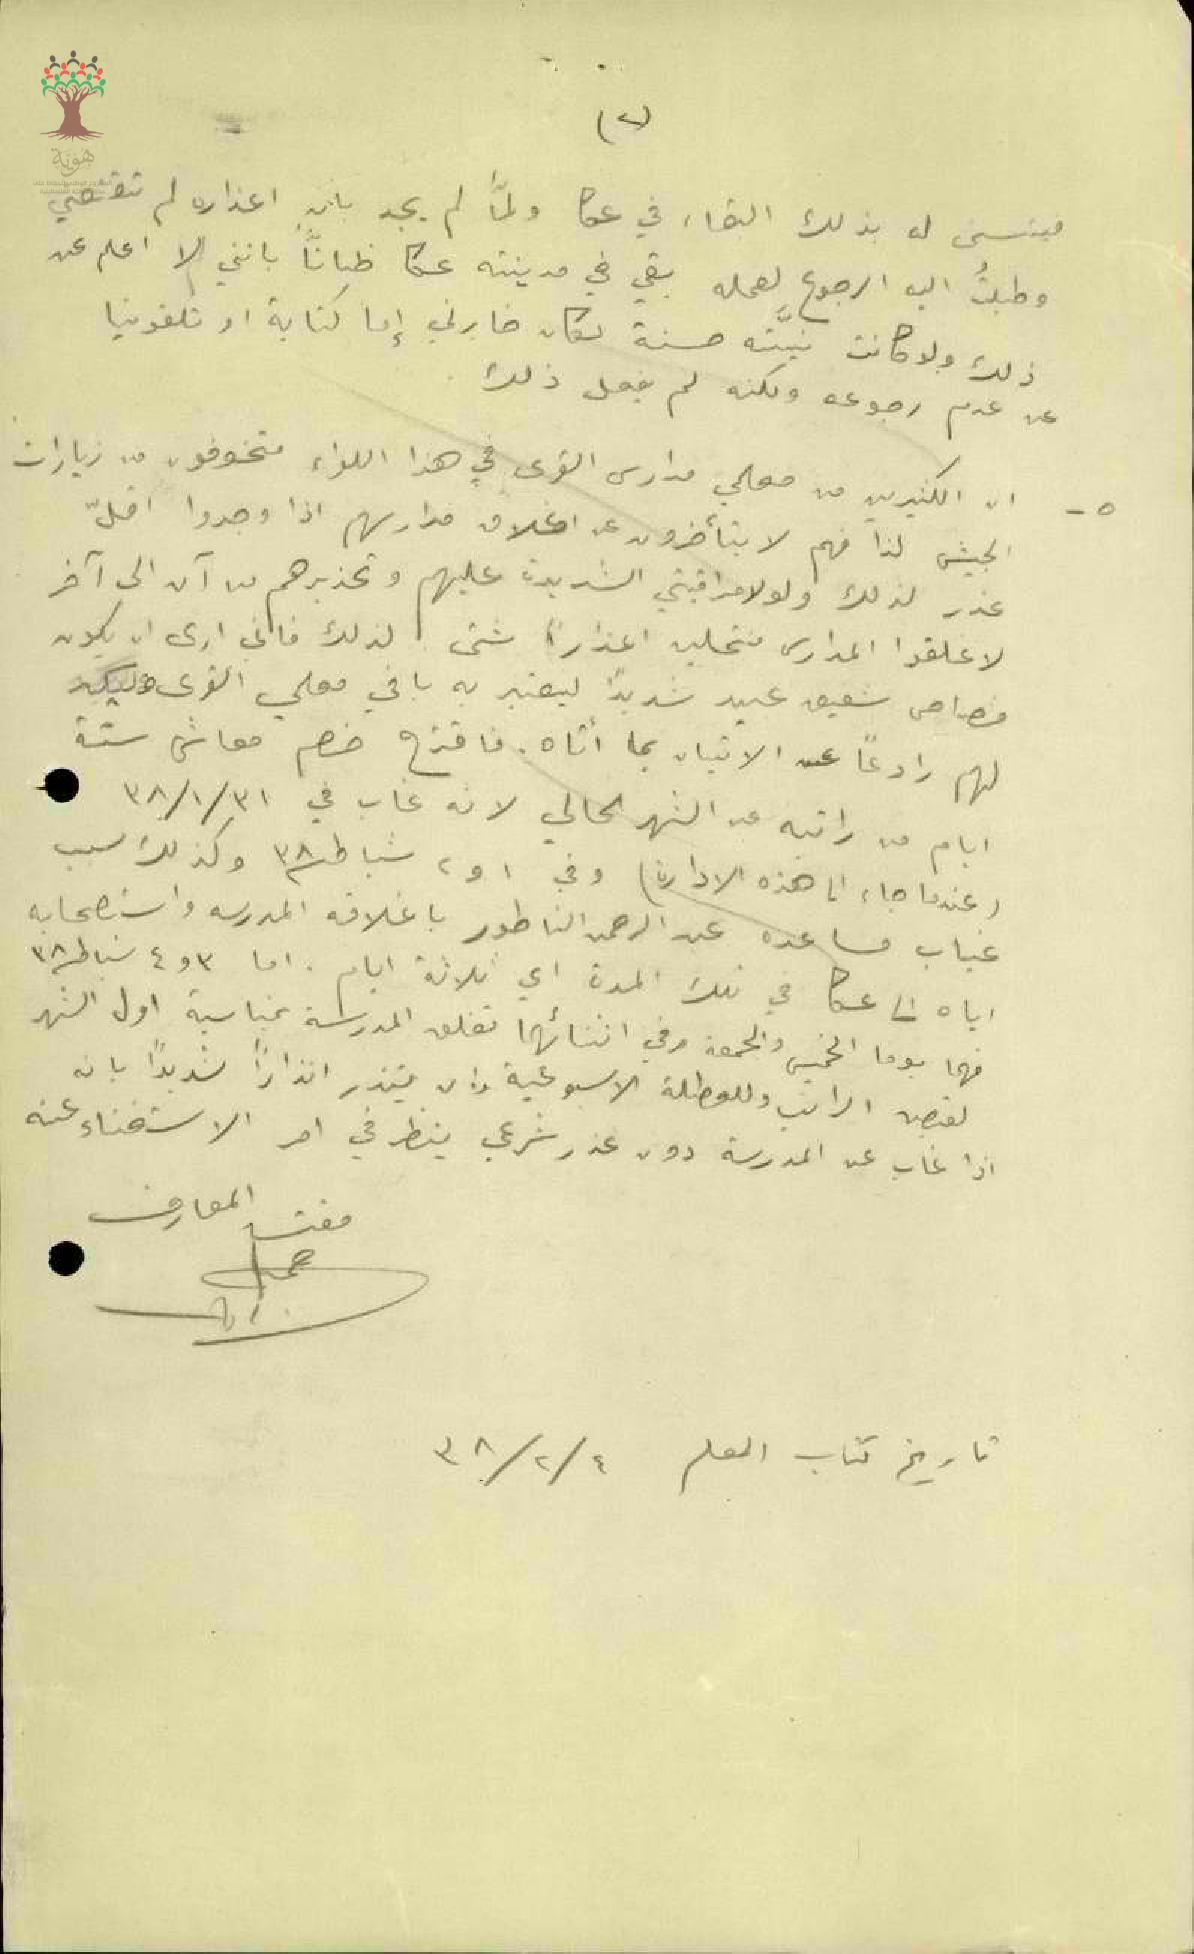 (٢)
هوية
فيتسنى له بذلك البقاء في عكا ولمّا لم يجد بان اعذاره لم تقنعني
وطلبتُ اليه الرجوع لعمله بقي في مدينته عكا ظناناً بانني لا اعلم عن
ذلك ولو كانت نيّته حسنة لكان خابرني إما كتابة او تلفونيا
عن عدم رجوعه ولكنه لم يفعل ذلك
٥- ان الكثيرين من معلمي مدارس القرى في هذا اللواء متخوفون من زيارات
الجيش لذا فهم لا يتأخرون عن اغلاق مدارسهم اذا وجدوا اقلّ
عذر لذلك ولولا مراقبتي الشديدة عليهم وتحذيرهم من آن الى آخر
لاغلقوا المدارس منتحلين اعذاراً شتى. لذلك فاني ارى ان يكون
قصاص شفيق عبيد شديداً ليعتبر به باقي معلمي القرى
لهم رادعاً عن الاتيان بما أتاه. فاقترح خصم معاش ستة
ايام من راتبه عن الشهر الحالي لانه غاب في ٣١/١/٣٨
(عندما جاء الى هذه الادارة) وفي ١ و٢ شباط ٣٨ وكذلك سبب
غياب مساعده عبد الرحمن الناطور باغلاقه المدرسه واستصحابه
اياه الى عكا في تلك المدة اي ثلاثة ايام. اما ٣ و ٤ شباط ٣٨
فهما يوما الخميس والجمعة وفي اثنائهما تغلق المدرسة بمناسبة اول الشهر
لقبض الراتب وللعطلة الاسبوعية وان يُنذر انذاراً شديداً بانه
اذا غاب عن المدرسة دون عذر شرعي ينظر في امر الاستغناء عنه
مفتش المعارف
تاريخ كتاب المعلم ٤/٢/٣٨